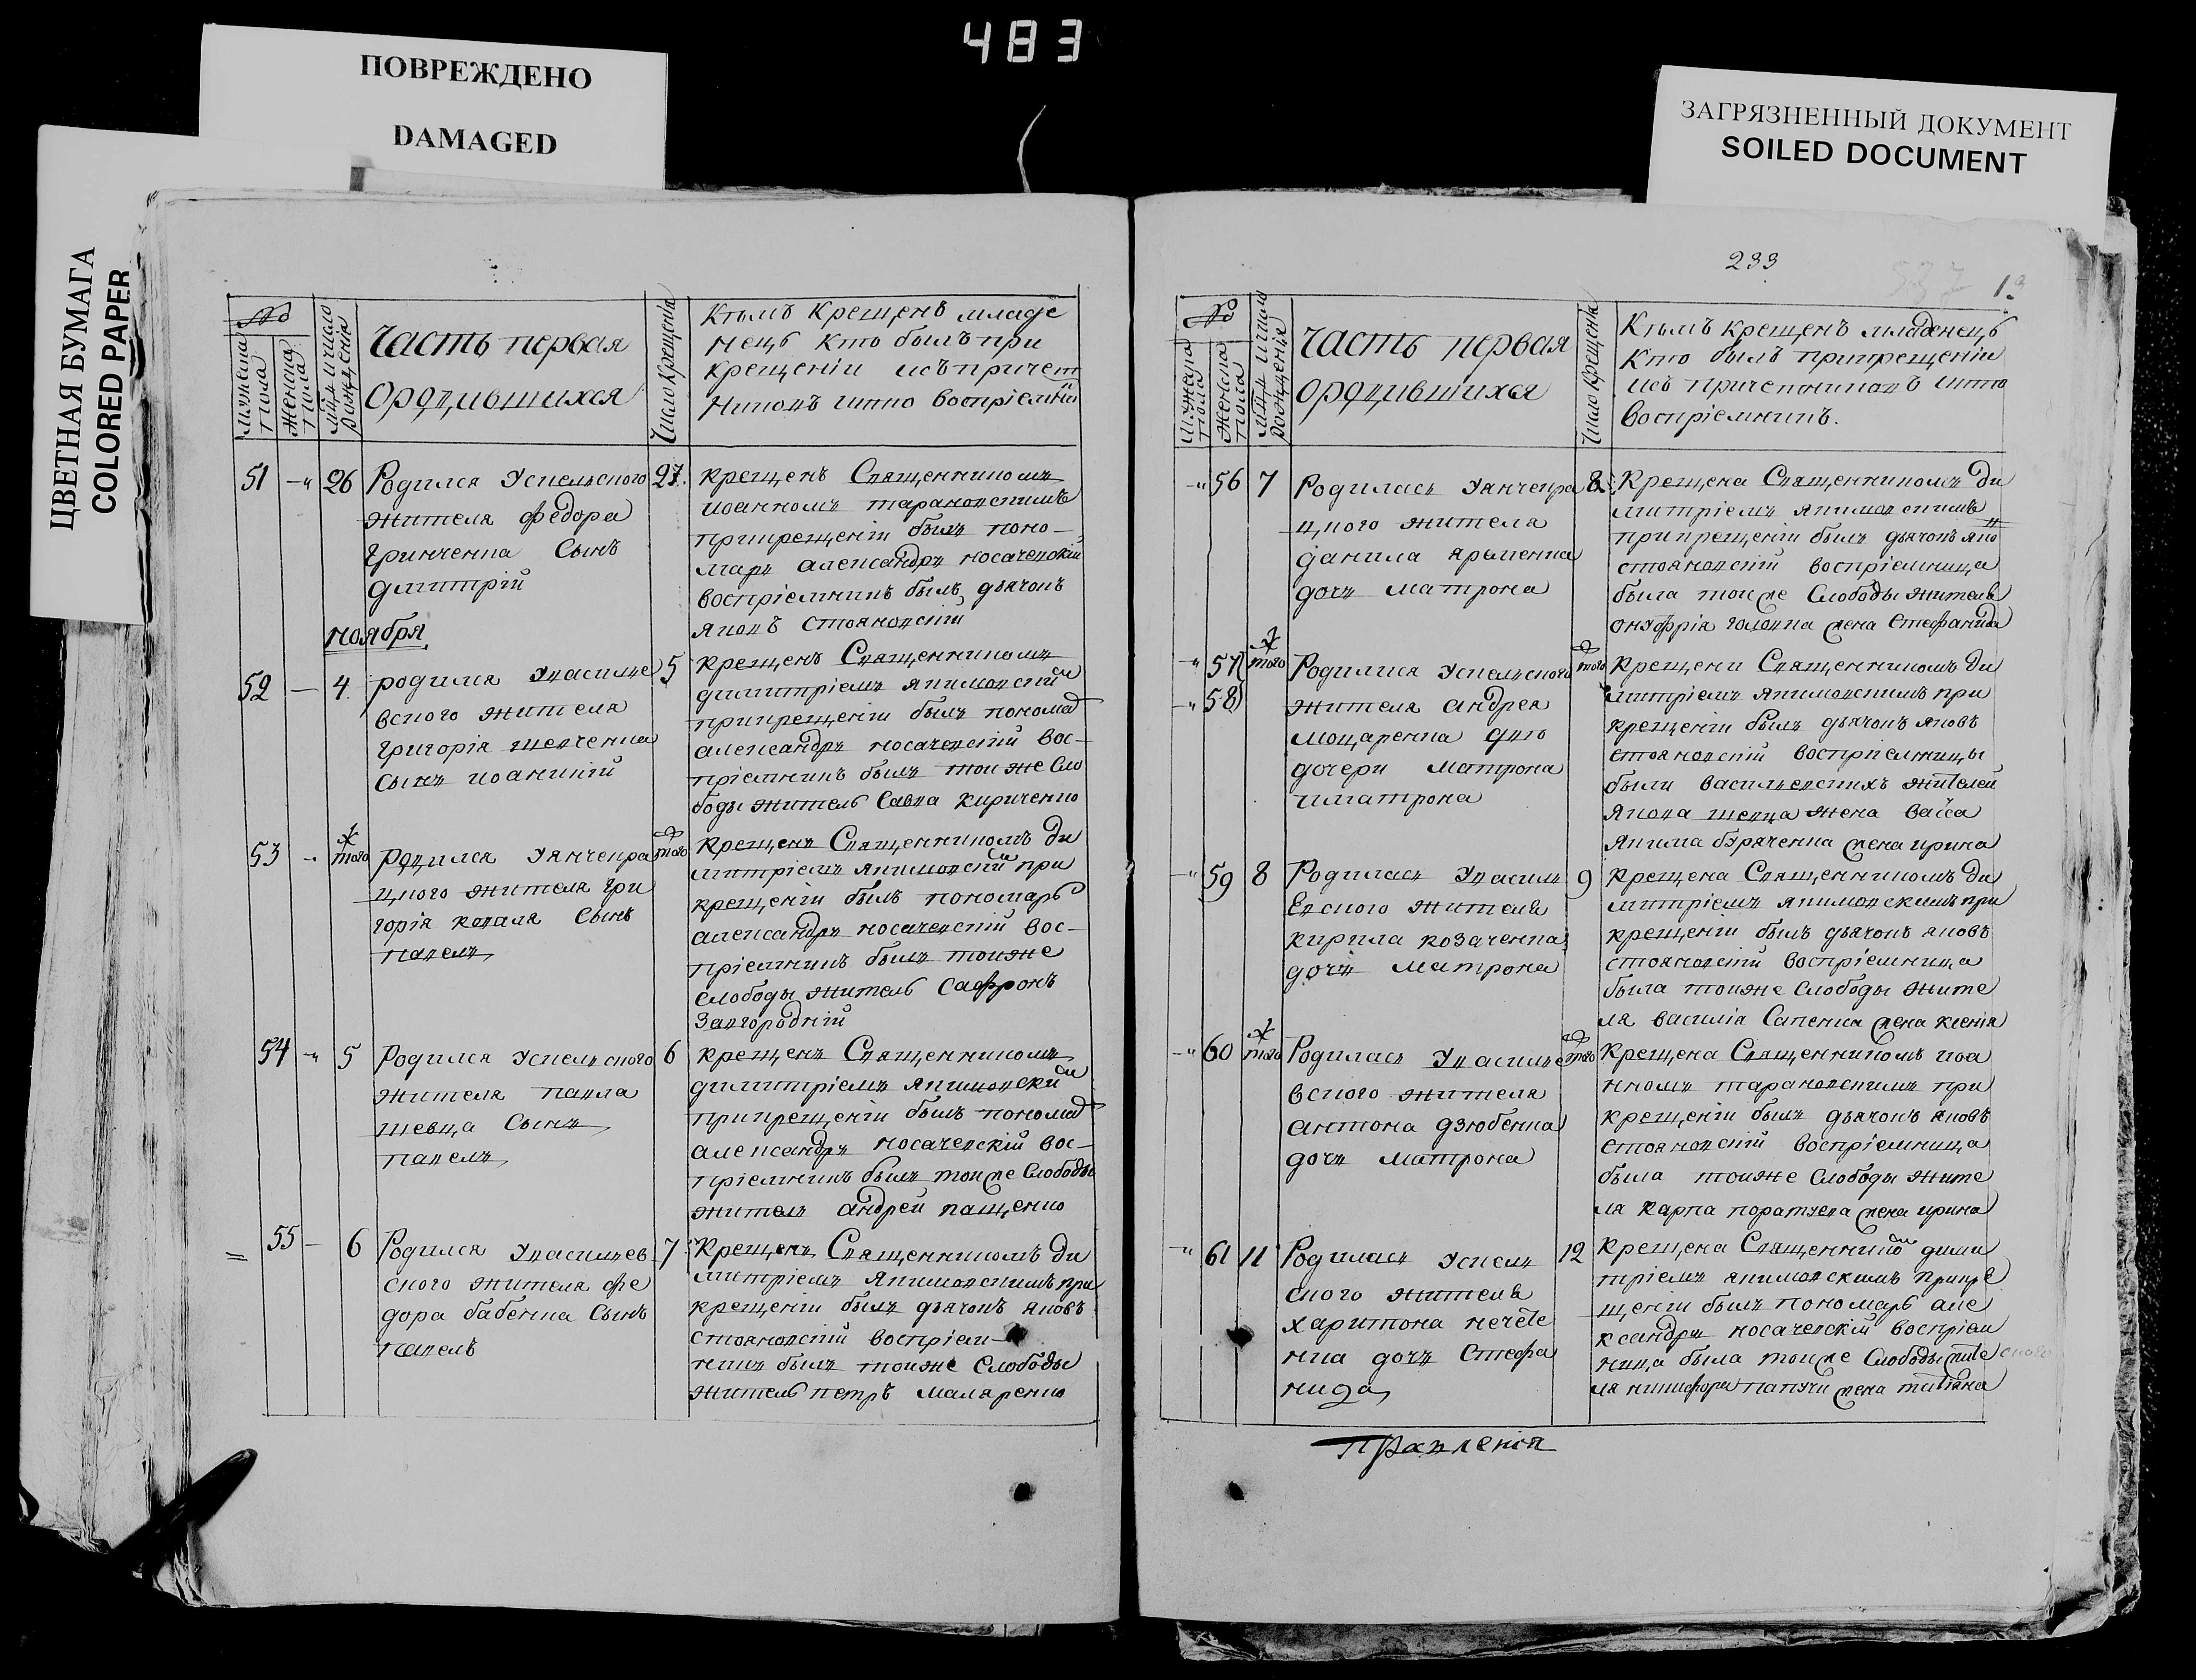 483
ПОВРЕЖДЕНО
DAMAGED
ЦВЕТНАЯ БУМАГА
COLORED PAPER
ЗАГРЯЗНЕННЫЙ ДОКУМЕНТ
SOILED DOCUMENT
№
мужеска пола
женска пола
мцъ и число рожденія
Часть первая
ородившихся
Число крещенія
Кѣмъ крещенъ младе
нецъ кто былъ при
крещеніи изъ причет
никовъ икто воспріемн
51 26 Родился успельского 27.
жителя федора
Гринченка Сынъ
дмитрій
крещенъ Священникомъ
иоанномъ тарановскимъ
прикрещеніи былъ поно-
марь александръ носачевскій
воспріемникъ былъ дьячокъ
яковъ стояновскій
ноября
52 4 родился увасилье 5
вского жителя
григорія шевченка
Сынъ иоанникій
крещенъ Священникомъ
димитріемъ якимовский
прикрещеніи былъ понома
александръ носачевскій вос-
пріемникъ былъ тои же Сло
боды житель Савка кириченко
53 того родился уянчекра того
цкого жителя гри
горія коваля Сынъ
павелъ
крещенъ Священникомъ ди
митріемъ якимовский при
крещеніи былъ пономарь
александръ носачевскій вос-
пріемникъ былъ тоиже
слободы житель Сафронъ
Завгородній
54 5 Родился успельского 6
жителя павла
шевца Сынъ
павелъ
крещенъ Священникомъ
димитріемъ якимовски
прикрещеніи былъ понома
александръ носачевскій вос-
пріемникъ былъ тоиже Слободы
житель андрей пащенко
55 6 Родился увасильев 7
ского жителя фе
дора бабенка Сынъ
павелъ
Крещенъ Священникомъ ди
митріемъ якимовскимъ при
крещеніи былъ дьячокъ яковъ
стояновскій воспріем-
никъ былъ тоиже Слободы
житель петръ маляренко
233
№
мужеска пола
женска пола
мцъ и число рожденія
Часть первая
ородившихся
Число крещенія
Кѣмъ крещенъ младенецъ
кто былъ прикрещеніи
изъ причетниковъ икто
воспріемникъ.
56 7 Родилась уянчекра 8
цкого жителя
данила яременка
дочь матрона
Крещена Священникомъ ди
митріемъ якимовскимъ
прикрещеніи былъ дьячокъ яко
стояновскій воспріемница
была тоиже Слободы жителя
онуфрія головка жена Стефанида
57 того Родилися успельского того
58
жителя андрея
моцаренка двѣ
дочери матрона
иматрона
Крещени Священникомъ ди
митріемъ якимовскимъ при
крещеніи былъ дьячокъ яковъ
стояновскій воспріемницы
были васильевскихъ жителей
якова шевца жена васса
якима буряченка жена ирина
59 8 Родилась увасиль 9
Евского жителя
кирила козаченка
дочь матрона
крещена Священникомъ ди
митріемъ якимовскимъ при
крещеніи былъ дьячокъ яковъ
стояновскій воспріемница
была тоиже Слободы жите
ля василія Сапенка жена ксенія
60 того Родилась увасилье того
вского жителя
антона дзюбенка
дочь матрона
Крещена Священникомъ иоа
нномъ тарановскимъ при
крещеніи былъ дьячокъ яковъ
стояновскій воспріемница
была тоиже Слободы жите
ля карпа жена ирина
61 11 Родилась успель 12
ского жителя
харитона нечете
нка дочь Стефа
нида
крещена Священнико дими
тріемъ якимовскимъ прикре
щеніи былъ пономарь але
ксандръ носачевскій воспріем
ница была тоиже Слободы жите
ля никифора папучи жена татіяна
Правленія